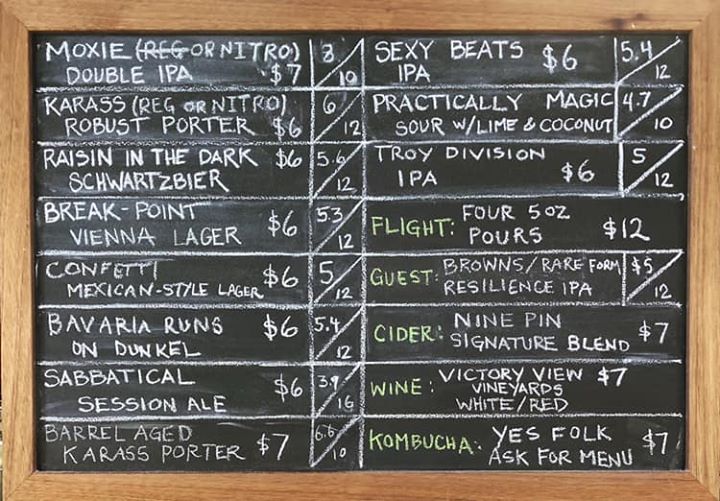 MOXIE (REG OR NITRO) 8/10
DOUBLE IPA $7
KARASS (REG OR NITRO) 6/12
ROBUST PORTER $6
RAISIN IN THE DARK $6 5.6/12
SCHWARTZBIER
BREAK-POINT 5.3/12
VIENNA LAGER $6
CONFETTI $6 5/12
MEXICAN-STYLE LAGER
BAVARIA RUNS $6 5.4/12
ON DUNKEL
SABBATICAL $6 3.9/16
SESSION ALE
BARREL AGED 6.6/10
KARASS PORTER $7
SEXY BEATS $6 5.4/12
IPA
PRACTICALLY MAGIC 4.7/10
SOUR W/LIME & COCONUT
TROY DIVISION 5/12
IPA $6
FLIGHT: FOUR 5OZ
POURS $12
GUEST: BROWNS/RARE FORM $5/12
RESILIENCE IPA
CIDER: NINE PIN $7
SIGNATURE BLEND
WINE: VICTORY VIEW $7
VINEYARDS
WHITE/RED
KOMBUCHA: YES FOLK $7
ASK FOR MENU